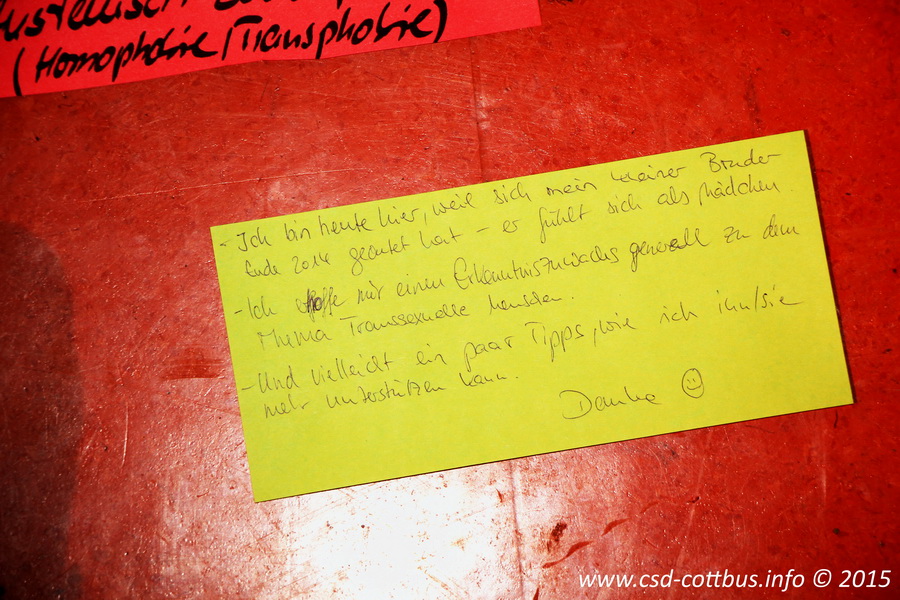 (Homophobie/Transphobie)
- Ich bin heute hier, weil sich mein kleiner Bruder
Ende 2014 geoutet hat - er fühlt sich als Mädchen.
- Ich hoffe mir einen Erkenntniszuwachs generell zu dem
Thema Transsexuelle Menschen.
- Und vielleicht ein paar Tipps, wie ich ihn/sie
mehr unterstützen kann.
Danke ☺
www.csd-cottbus.info © 2015